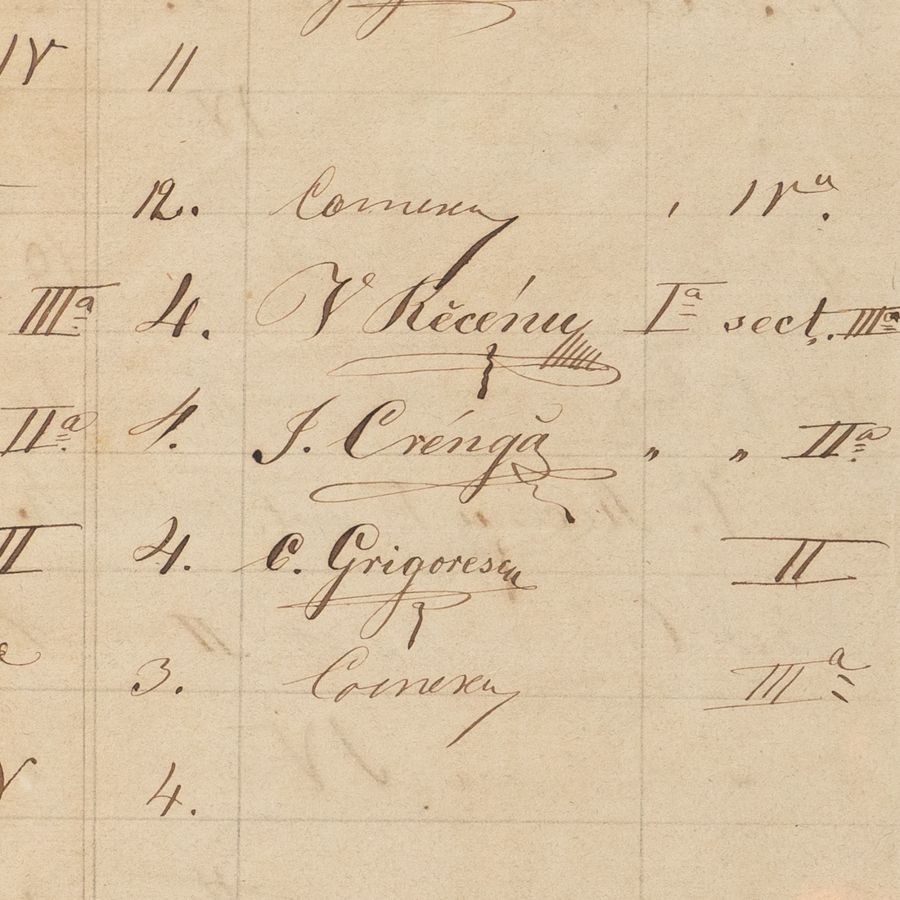 IV 11
12. Comenescu , IVa.
IIIa 4. V Rĕcénu Ia secț. IIIa
IIa. 4. I. Créngă „ „ IIa.
II 4. C. Grigorescu II
a 3. IIIa
V 4.